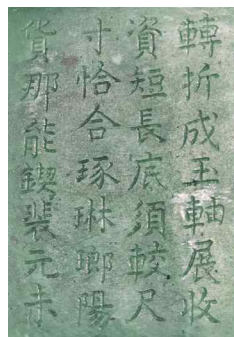 轉折成玉軸展收
資短長底須較尺
寸恰合琢琳瑯陽
貨那能鍥裴元未